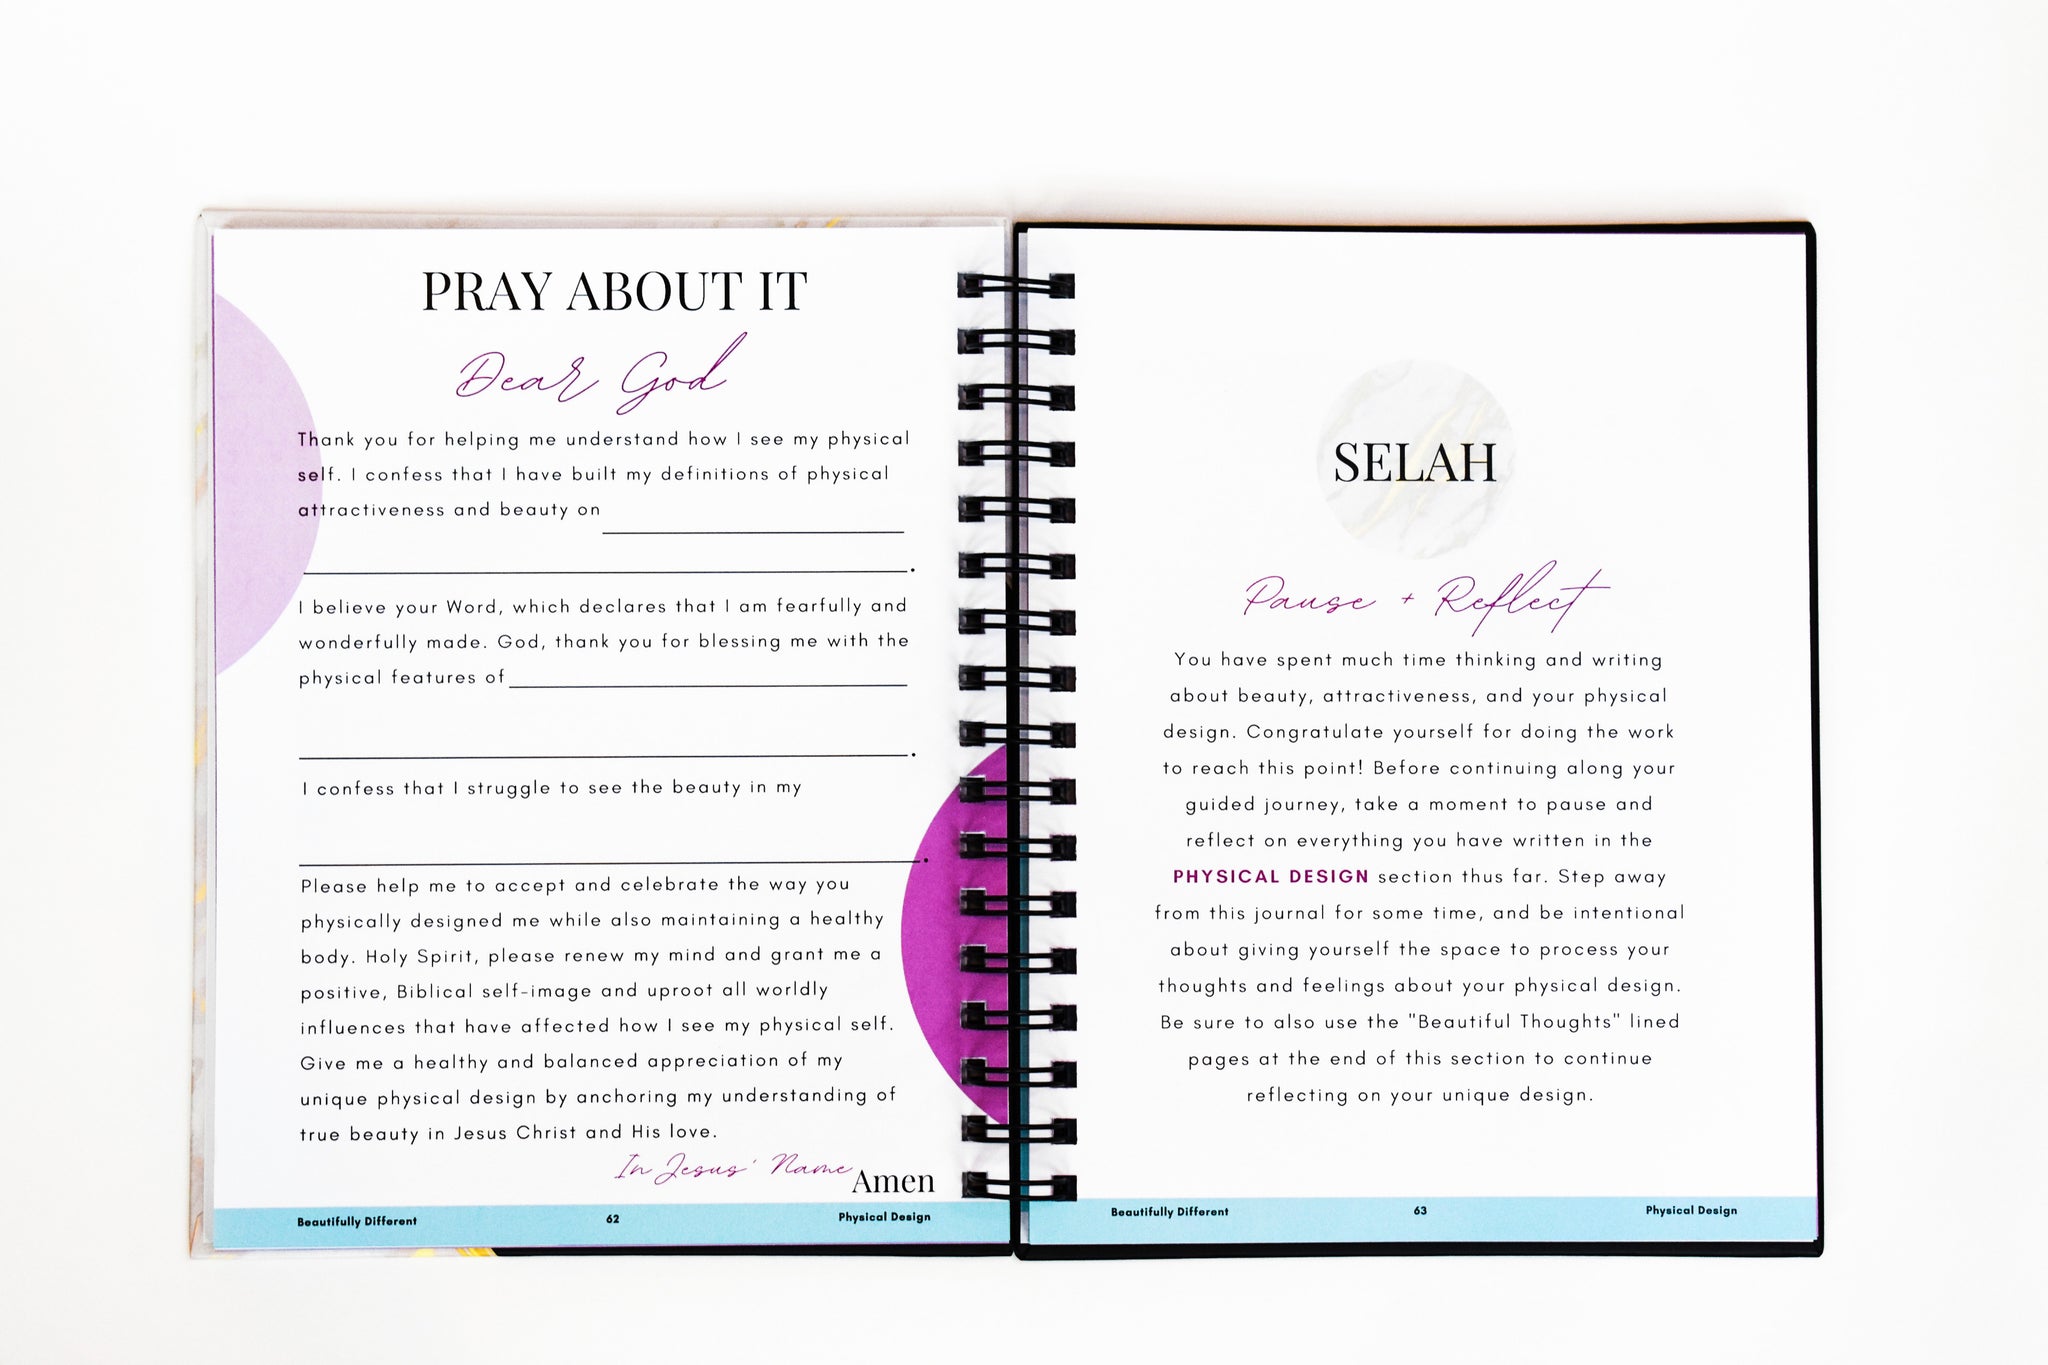 PRAY ABOUT IT
Dear God
Thank you for helping me understand how I see my physical
self. I confess that I have built my definitions of physical
attractiveness and beauty on
.
I believe your Word, which declares that I am fearfully and
wonderfully made. God, thank you for blessing me with the
physical features of
.
I confess that I struggle to see the beauty in my
.
Please help me to accept and celebrate the way you
physically designed me while also maintaining a healthy
body. Holy Spirit, please renew my mind and grant me a
positive, Biblical self-image and uproot all worldly
influences that have affected how I see my physical self.
Give me a healthy and balanced appreciation of my
unique physical design by anchoring my understanding of
true beauty in Jesus Christ and His love.
In Jesus' Name Amen
Beautifully Different 62 Physical Design
SELAH
Pause + Reflect
You have spent much time thinking and writing
about beauty, attractiveness, and your physical
design. Congratulate yourself for doing the work
to reach this point! Before continuing along your
guided journey, take a moment to pause and
reflect on everything you have written in the
PHYSICAL DESIGN section thus far. Step away
from this journal for some time, and be intentional
about giving yourself the space to process your
thoughts and feelings about your physical design.
Be sure to also use the "Beautiful Thoughts" lined
pages at the end of this section to continue
reflecting on your unique design.
Beautifully Different 63 Physical Design